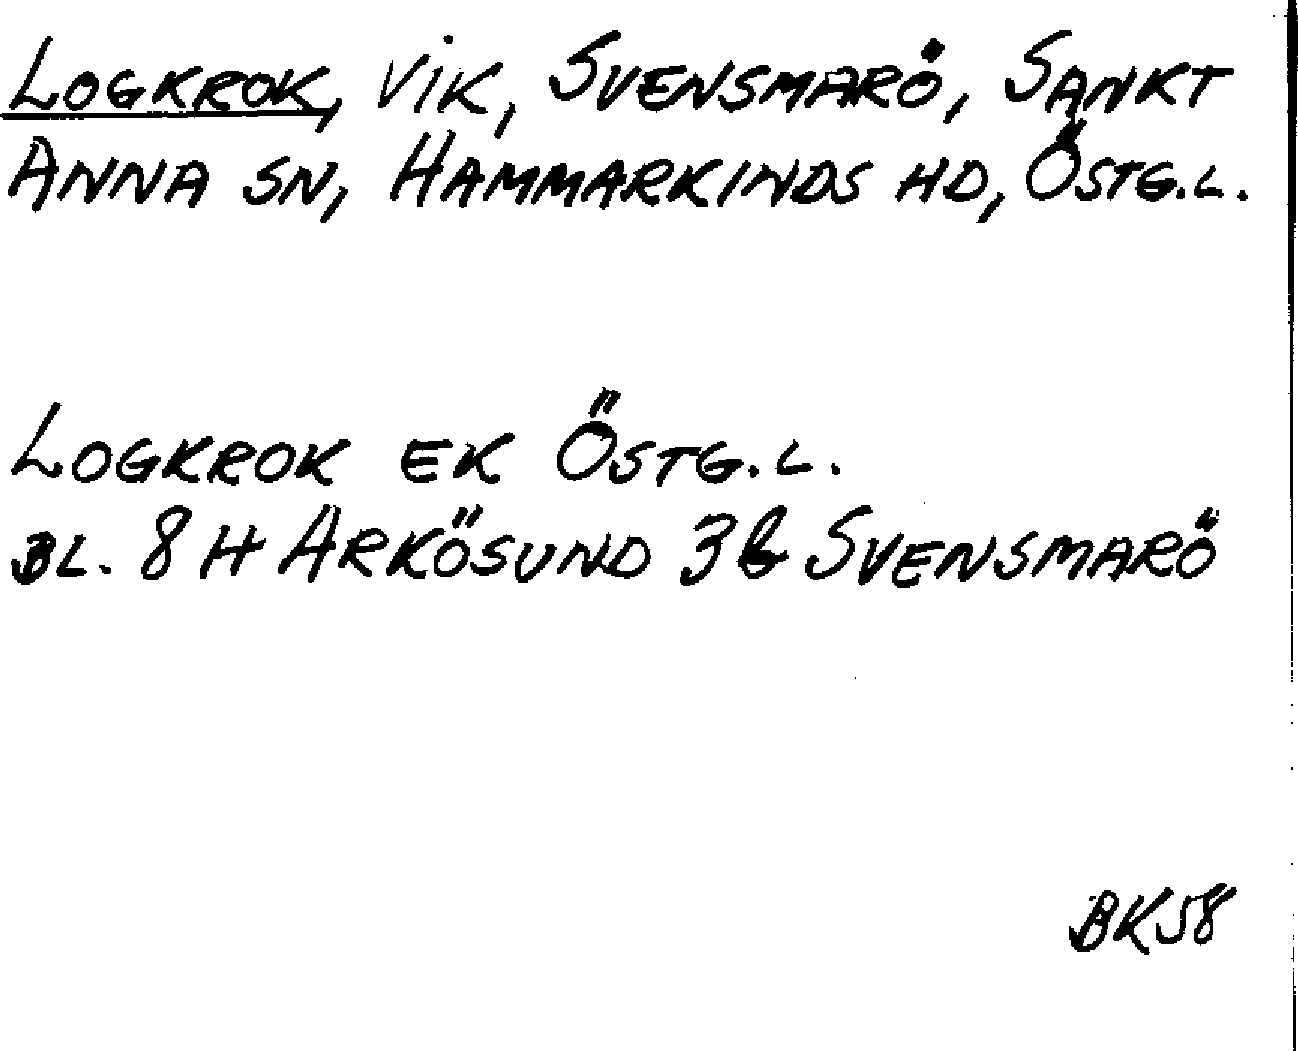 LOGKROK, VIK, SVENSMARÖ, SANKT
ANNA SN, HAMMARKINDS HD, ÖSTG.L.
LOGKROK EK ÖSTG.L.
BL. 8 H ARKÖSUND 3 b SVENSMARÖ
BK58